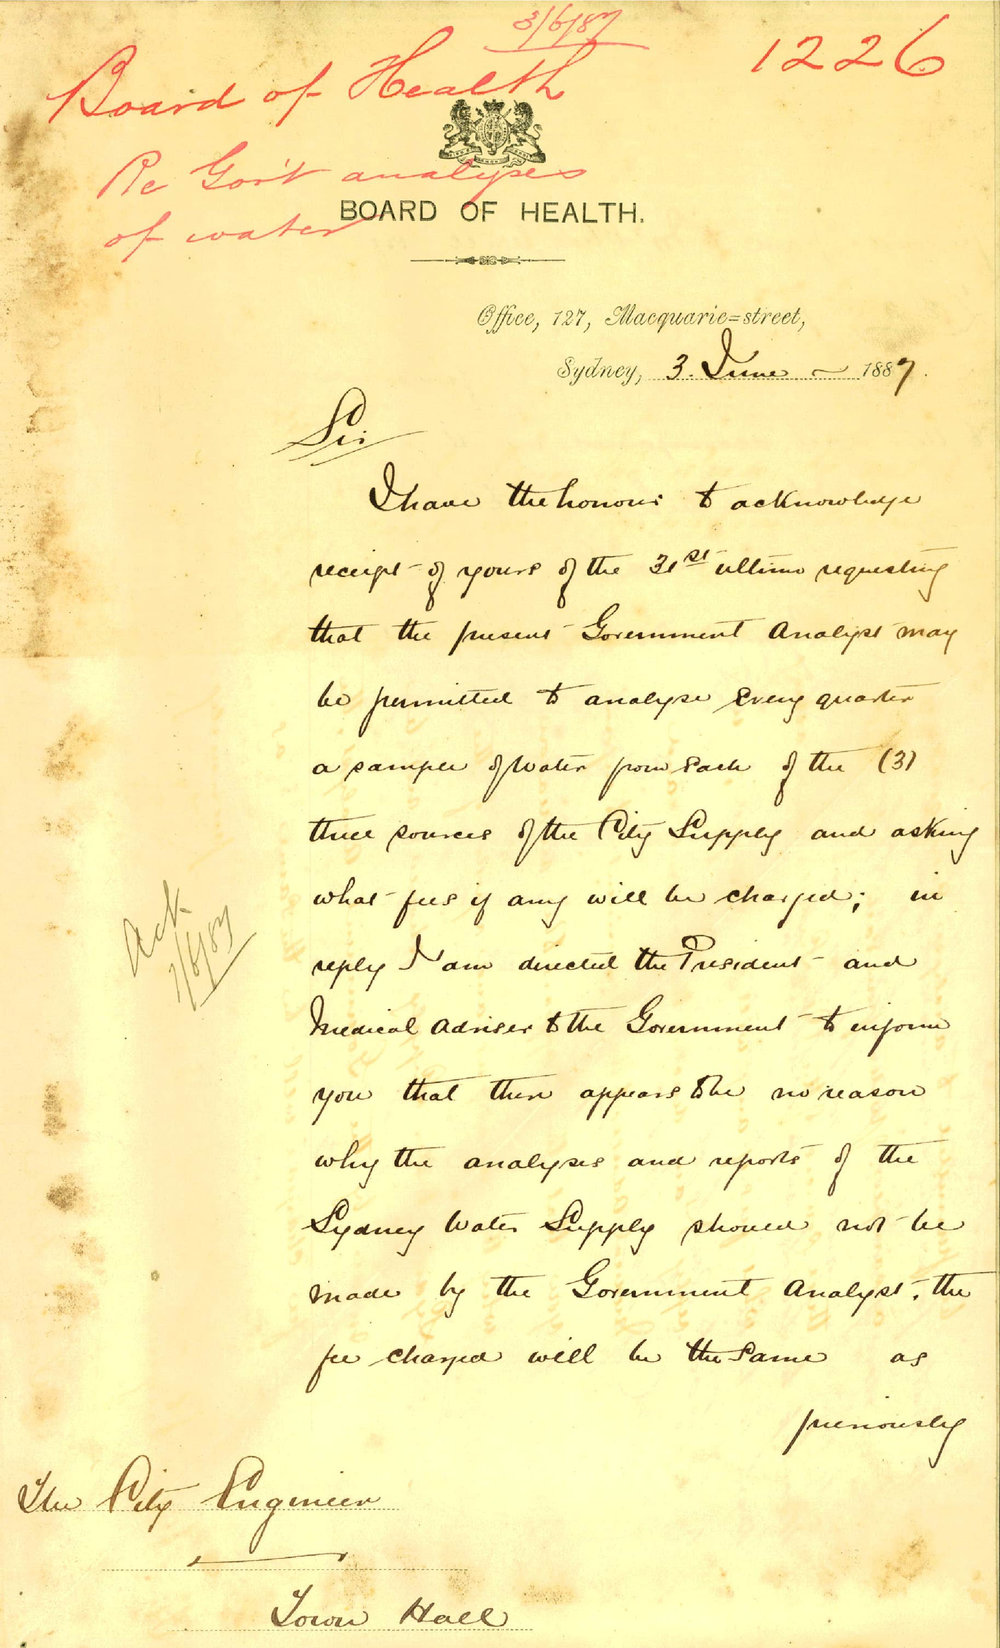 3/6/87
1226
Board of Health
Re Gov't analyses
of water
BOARD OF HEALTH.
Office, 127, Macquarie=street,
Sydney, 3. June 1887.
Sir
I have the honour to acknowledge
receipt of yours of the 31st ultimo requesting
that the present Government Analyst may
be permitted to analyse every quarter
a sample of Water from each of the (3)
three sources of the City Supply and asking
what fees if any will be charged; in
reply I am directed the President and
Medical Adviser to the Government to inform
you that there appears to be no reason
why the analyses and reports of the
Sydney Water Supply should not be
made by the Government Analyst, the
fee charged will be the same as
previously
Ack
7/6/87
The City Engineer
Town Hall